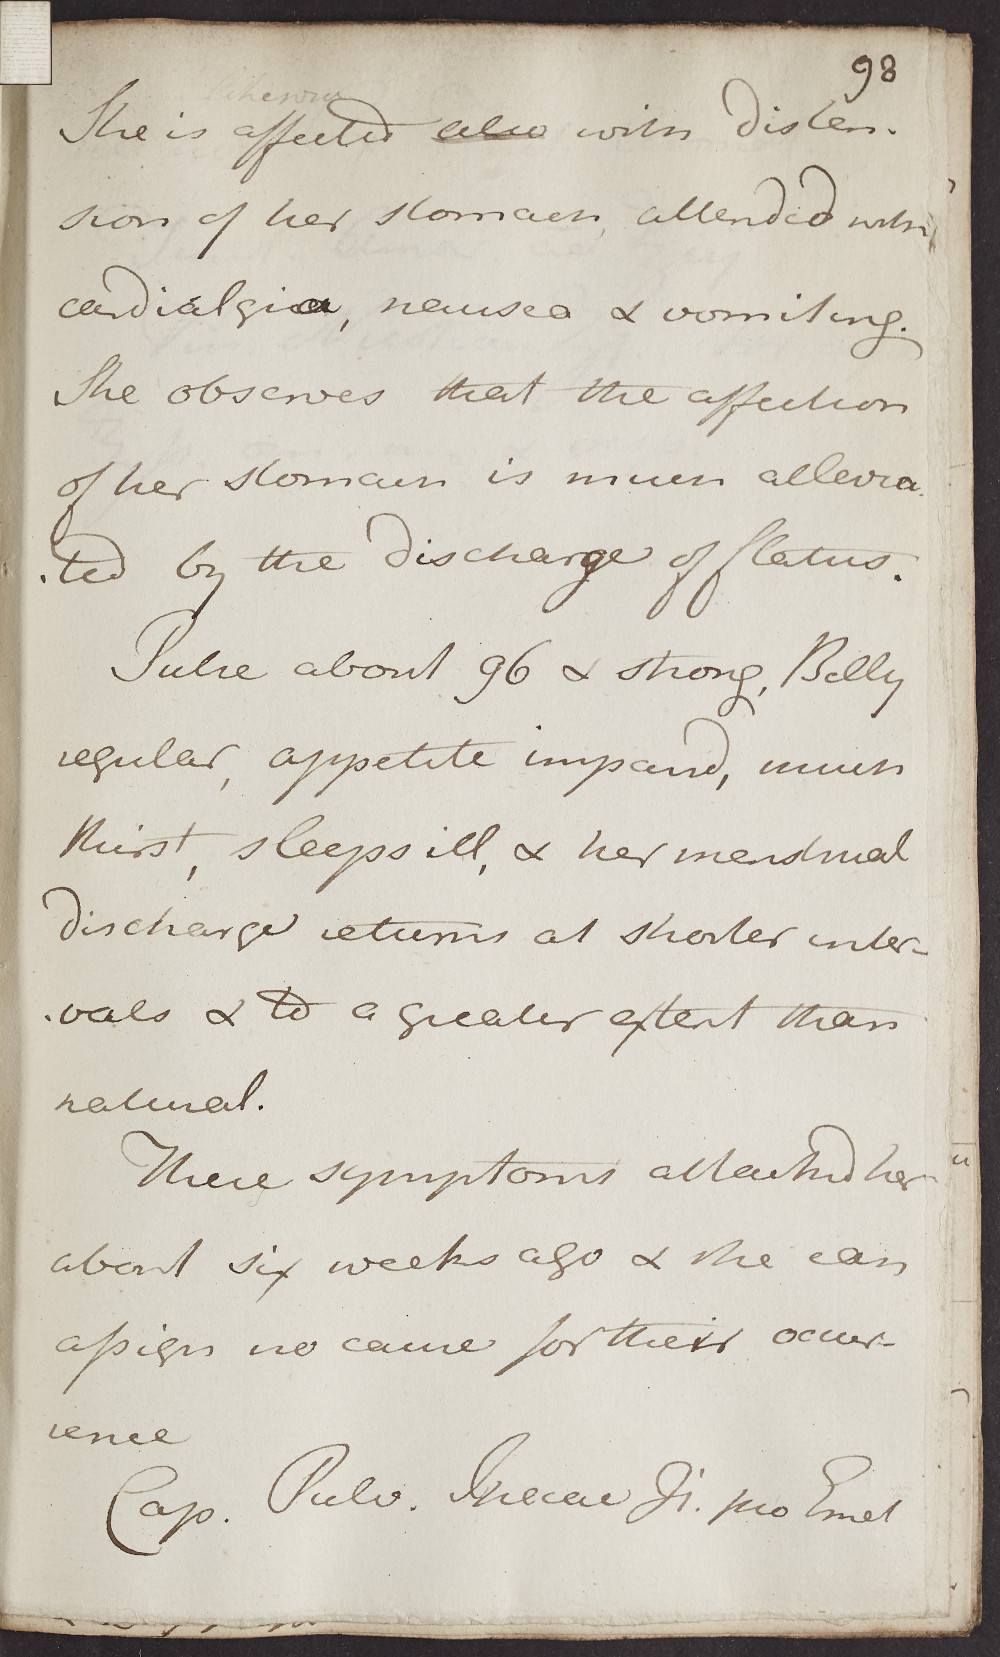 98
likewise
She is affected also with disten-
sion of her stomach, attended with
cardialgia, nausea & vomiting.
She observes that the affection
of her stomach is much allevia-
-ted by the discharge of flatus.
Pulse about 96 & strong, Belly
regular, appetite impaird, much
thirst, sleeps ill, & her menstrual
discharge returns at shorter inter-
-vals & to a greater extent than
natural.
These symptoms attack'd her
about six weeks ago & she can
assign no cause for their occur-
rence
Cap. Pulv. Ipecac ℈i. pro Emet